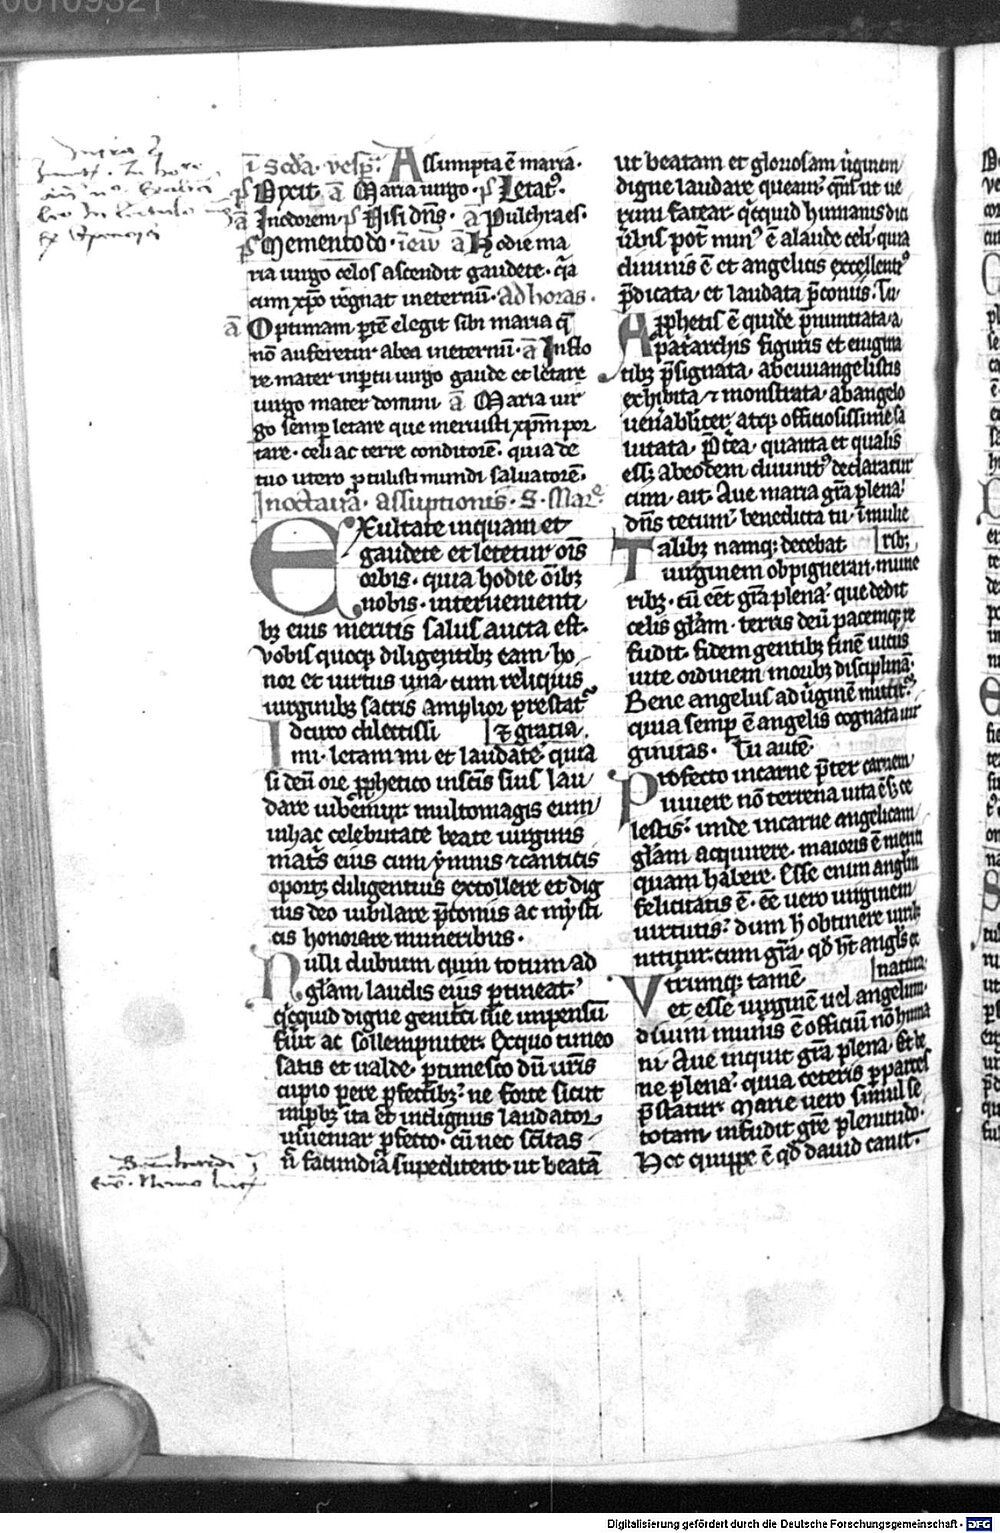 00109321
ī scd̄a. vesp̄. Assumpta ē maria.
p̄s Dixit. ā Maria uirgo. p̄s Letat᷒.
ā In odorem. p̄s Nisi dn̄s. ā Pulchra es.
p̄s Memento do. ī eūu ā Hodie ma
ria uirgo celos ascendit gaudete. q̄a
cum xp̄o regnat ineternū. ad horas.
ā Optimam ptē elegit sibi maria q̄
nō auferetur ab ea ineternū. ā Inflo
re mater in ptu uirgo gaude et letare
uirgo mater domini ā Maria uir
go semp letare que meruisti xp̄m por
tare. celi ac terre conditorē. quia de
tuo utero ptulisti mundi saluatorē.
In octaua. assūptionis. S. Marᵉ
Exultate inquam et
gaudete et letetur oīs
orbis. quia hodie oībꝫ
nobis. interuenienti
bꝫ eius meritis salus aucta est.
Vobis quoqꝫ diligentibꝫ eam ho
nor et uirtus una cum reliquis
uirginibꝫ sacris amplior prestat᷒
Idcirco chlerissi [ꝫ gratia.
mi. letamini et laudate. quia
si deū ore p̄phetico in scīs suis lau
dare iubemur. multomagis eum
in hac celebritate beate uirginis
mat̄s eius cum ymnis ⁊ canticis
oportꝫ diligentius extollere et dig
nis deo iubilare p̄coniis ac mysti
cis honorare muneribus.
Nulli dubium quin totum ad
gl̄am laudis eius ptineat.
q̄cquid digne genit'ci sue impensū
fu'it ac sollempnitet. Ex quo timeo
satis et ualde. ptimesco dū ur̄is
cupio pere pfectibꝫ. ne forte sicut
improbꝫ ita et indignus laudator
inueniar pfecto. cū nec sc̄itas
n̄ facundia supeditent ut beatā
ut beatam et gloriosam ūginem
digne laudare queam. qm̄ ut ue
rum fatear q̄cquid humanis dici
ūbis pot min᷒ ē a laude celi. quia
diuinis ē et angelicis excellenti᷒
p̄dicata. et laudata p̄coniis. Tu
A p̄phetis ē quidē p̄nuntiata. a
patarchis figuris et enigma
tibꝫ p̄signata. ab euuangelistis
exhibita ⁊ monstrata. ab angelo
uen̄abiliter atqꝫ officiosissime sa
lutata. P̄tea. quanta et qualis
essꝫ ab eodem diuinit᷒ declaratur
cum ait. Aue maria gr̄a plena.
dn̄s tecum. benedicta tu. ī mulie
Talibꝫ namqꝫ decebat [ribꝫ
uirginem obpignerari mune
ribꝫ. cū eēt gr̄a plena. que dedit
celis gl̄am. terris deū pacemqꝫ re
fudit. fidem gentibꝫ finē uiciis
uite ordinem moribꝫ disciplinā.
Bene angelus ad ūginē mittit᷒.
quia semp ē angelis cognata uir
ginitas. Tu autē.
Profecto in carne p̄ter carnem
uiuere nō terrena uita ē sꝫ ce
lestis. unde in carne angelicam
gl̄am acquirere. maioris ē meriti
quam habere. Esse enim angl̄m
felicitatis ē. eē uero uirginem
uirtutis. dum h̄ obtinere uirib
nititur cum gr̄a. qd̄ h̄t angl̄s ex
Vtrumqꝫ tamē [natura.
et esse uirginē uel angelum.
diuini muneris ē officiū nō huma
ni. Aue inquit gr̄a plena. Et be
ne plena. quia ceteris p partes
p̄statur. Marie uero simul se
totam infudit gr̄e plenitudo.
Hec quippe ē qd̄ dauid canit.
Digitalisierung gefördert durch die Deutsche Forschungsgemeinschaft - DFG